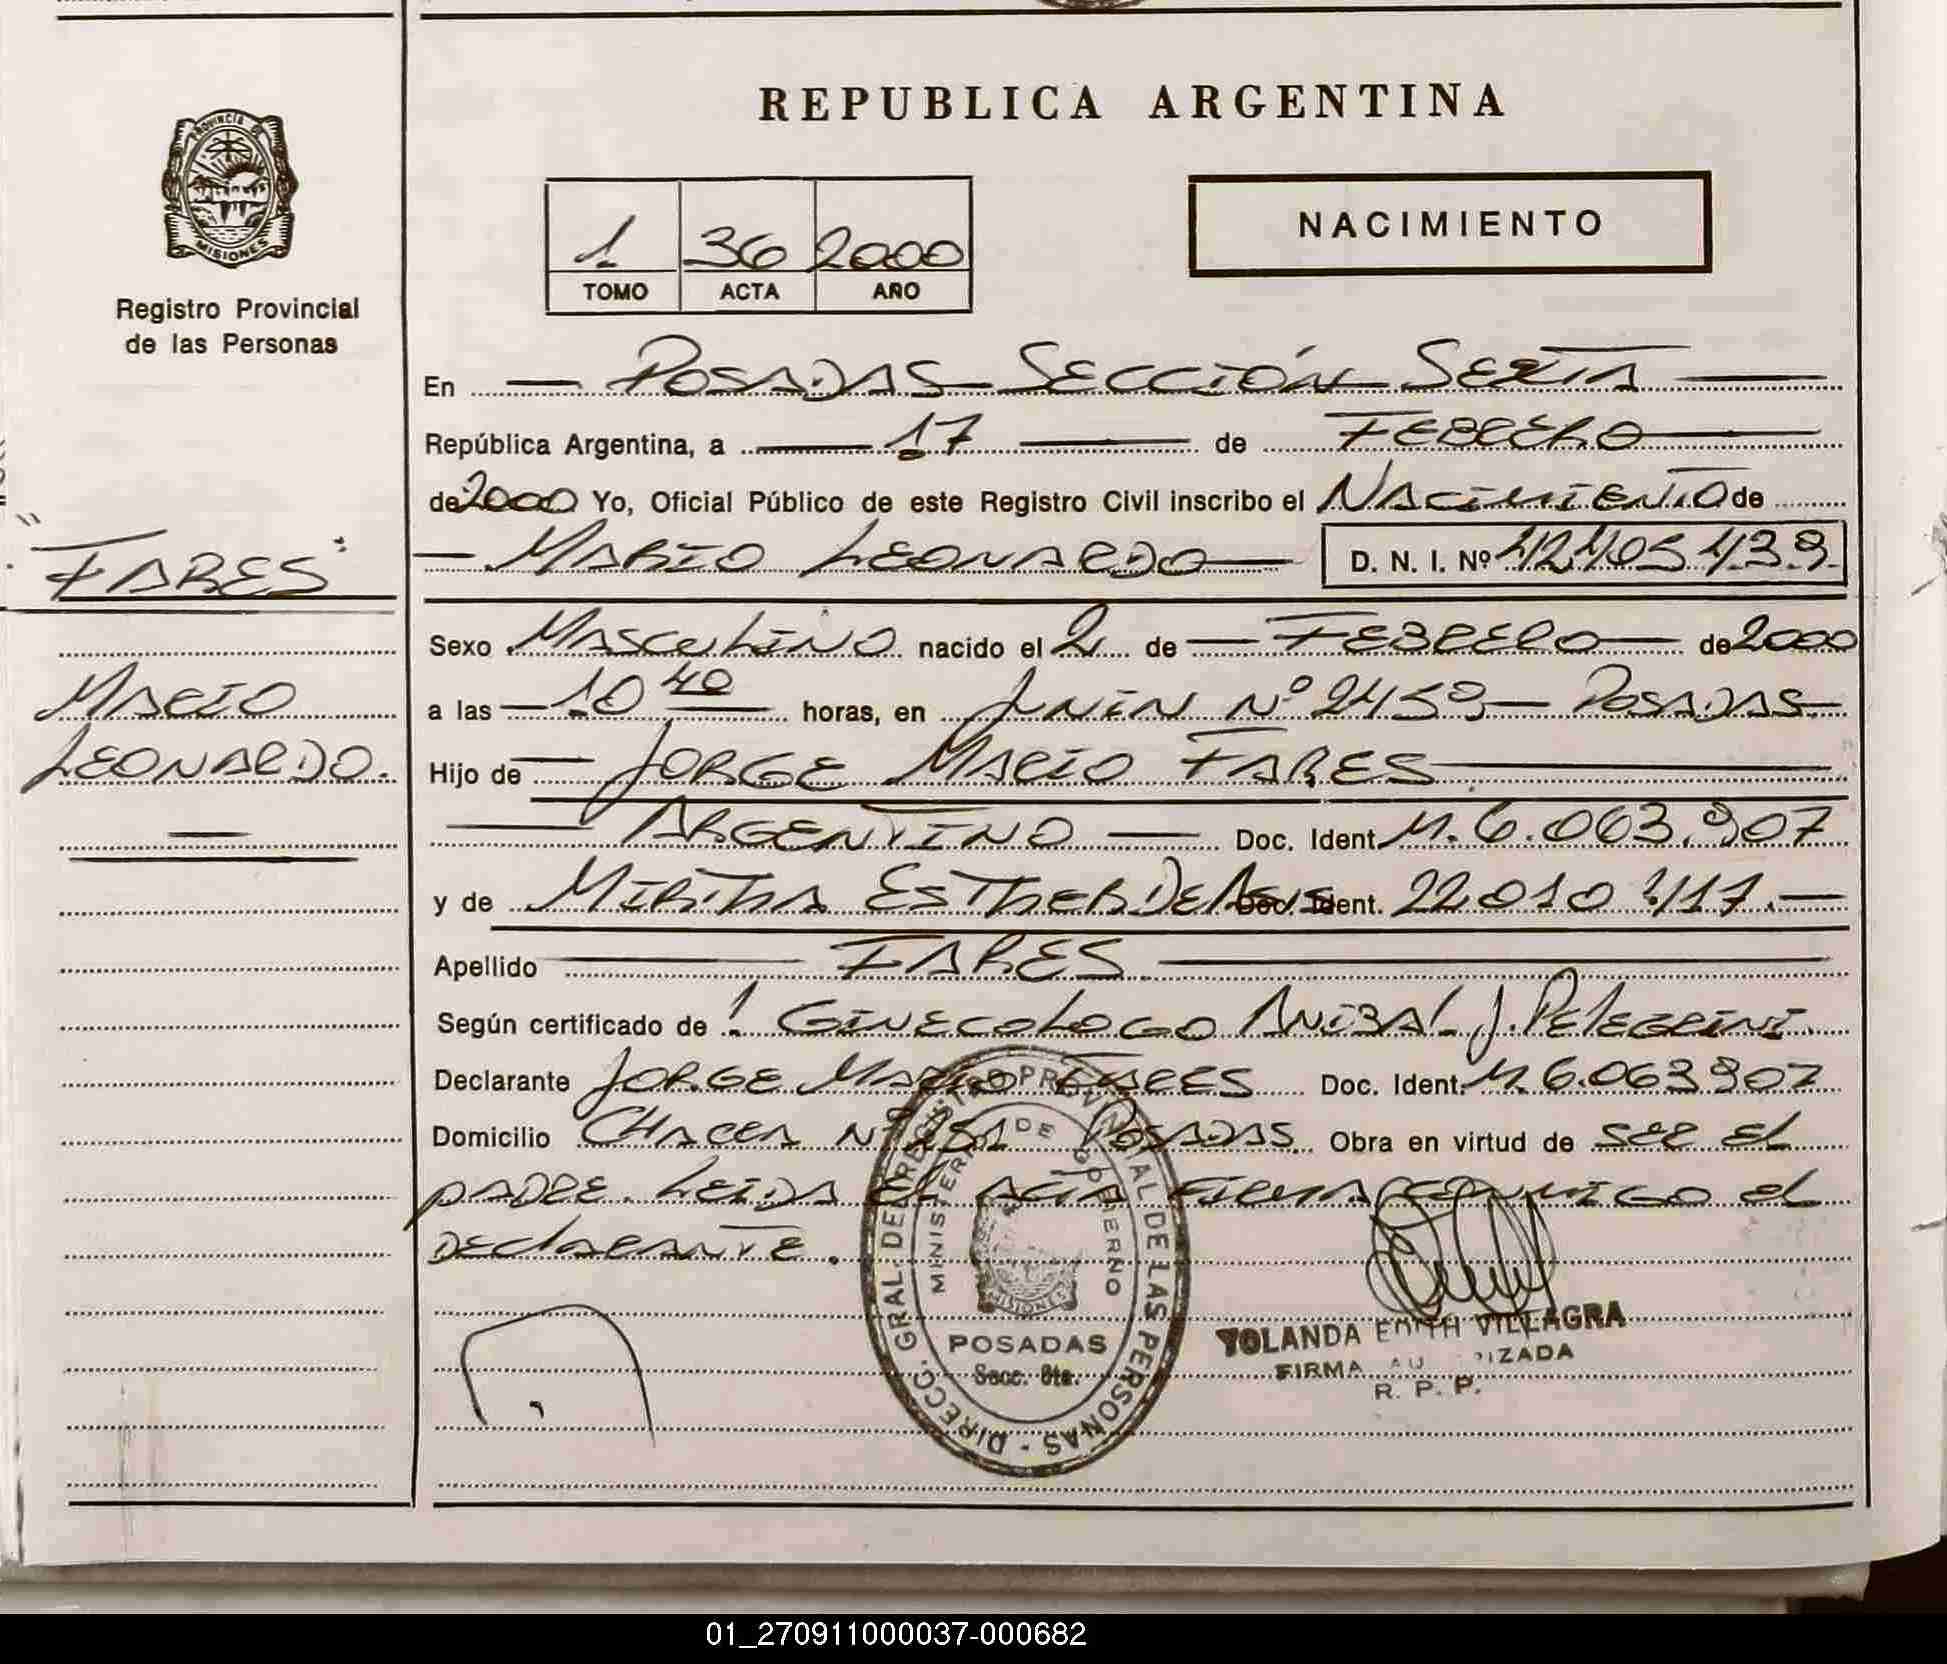 PROVINCIA DE
MISIONES
Registro Provincial
de las Personas
"FARES"
MARIO
LEONARDO.
REPUBLICA ARGENTINA
1 36 2000
TOMO ACTA AÑO
NACIMIENTO
En POSADAS SECCIÓN SEXTA
República Argentina, a 17 de FEBRERO
de 2000 Yo, Oficial Público de este Registro Civil inscribo el NACIMIENTO de
MARIO LEONARDO D. N. I. Nº 42.405.439
Sexo MASCULINO nacido el 2 de FEBRERO de 2000
a las 10 40 horas, en JUNIN Nº 2459 POSADAS
Hijo de JORGE MARIO FARES
ARGENTINO Doc. Ident. M. 6.063.907
y de MIRTHA ESTHER DE Doc. Ident. 22.010.417.
Apellido FARES
Según certificado de ! GINECOLOGO ANIBAL J. PELEGRINI.
Declarante JORGE MARIO FARES Doc. Ident. M. 6.063.907
Domicilio CHACRA Nº 151 POSADAS. Obra en virtud de SER EL
PADRE. LEIDA EL ACTA FIRMA CONMIGO EL
DECLARANTE.
DIRECC. GRAL. DEL REGISTRO PROVINCIAL DE LAS PERSONAS -
MINISTERIO DE GOBIERNO
MISIONES
POSADAS
Secc. 6ta.
YOLANDA EDITH VILLAGRA
FIRMA AUTORIZADA
R. P. P.
01_270911000037-000682